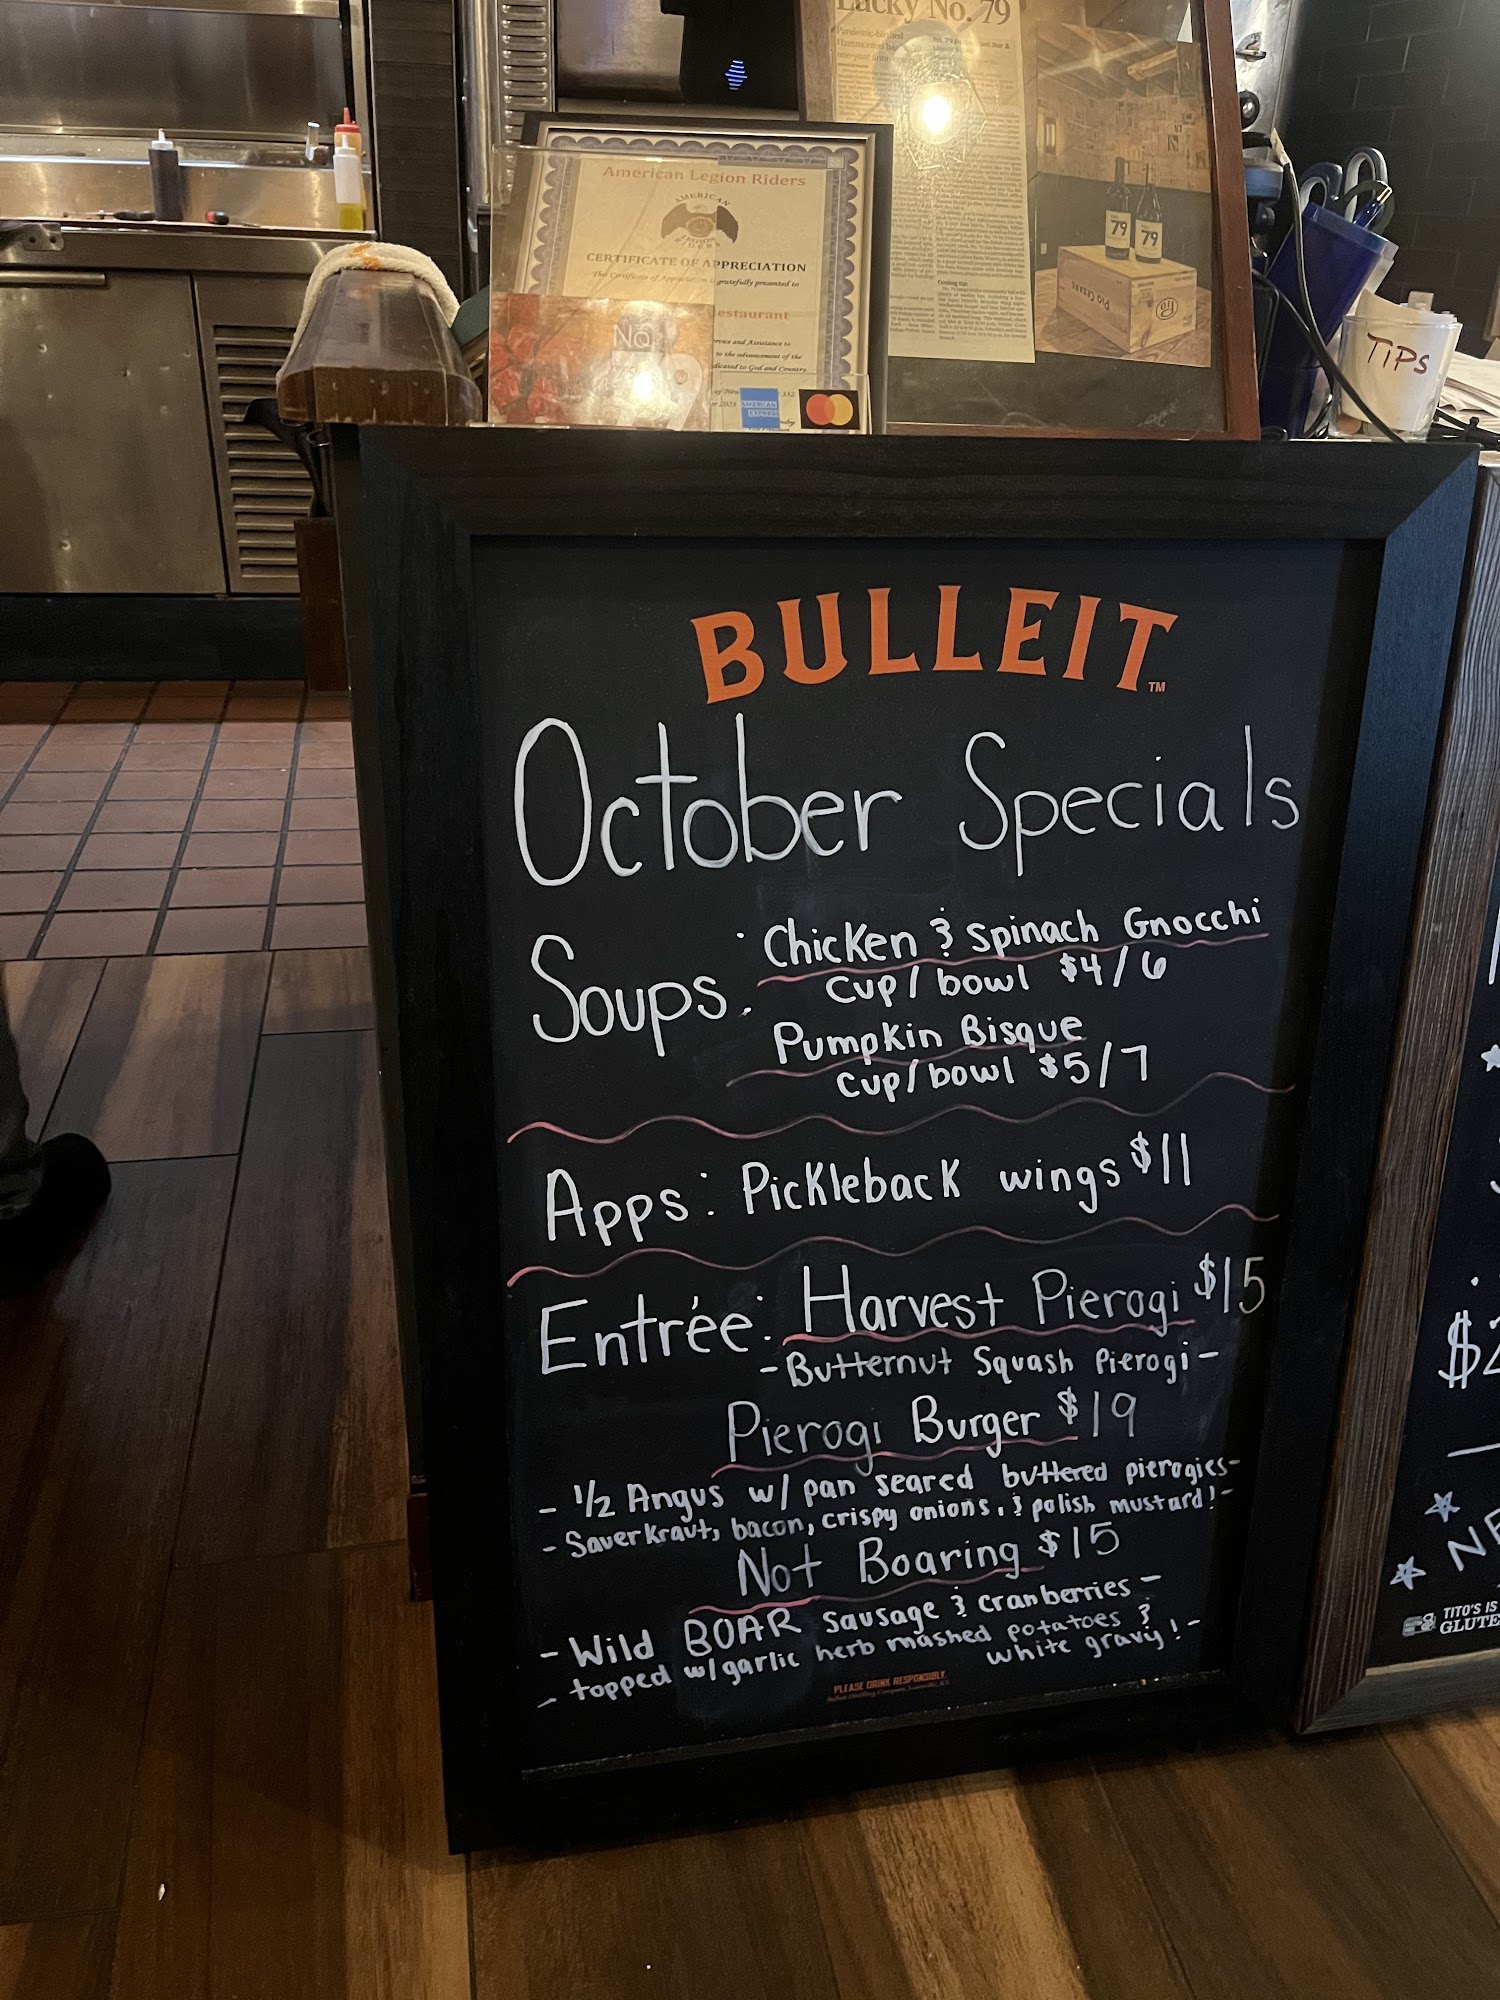 Lucky No. 79
Pandemic-birthed
American Legion Riders
AMERICAN
LEGION
CERTIFICATE OF APPRECIATION
This Certificate of Appreciation gratefully presented to
estaurant
to the advancement of the
dicated to God and Country
No.
79
AMERICAN
EXPRESS
79
79
Pio Cesare
Coming Up:
TiPS
BULLEIT TM
October Specials
Soups: Chicken & Spinach Gnocchi
cup/bowl $4/6
Pumpkin Bisque
cup/bowl $5/7
Apps: Pickleback wings $11
Entrée: Harvest Pierogi $15
-Butternut Squash Pierogi-
Pierogi Burger $19
- 1/2 Angus w/ pan seared buttered pierogies-
- Sauerkraut, bacon, crispy onions, & polish mustard! -
Not Boaring $15
- Wild BOAR sausage & cranberries -
- topped w/garlic herb mashed potatoes &
white gravy! -
PLEASE DRINK RESPONSIBLY.
$2
NE
TITO'S IS
GLUTE